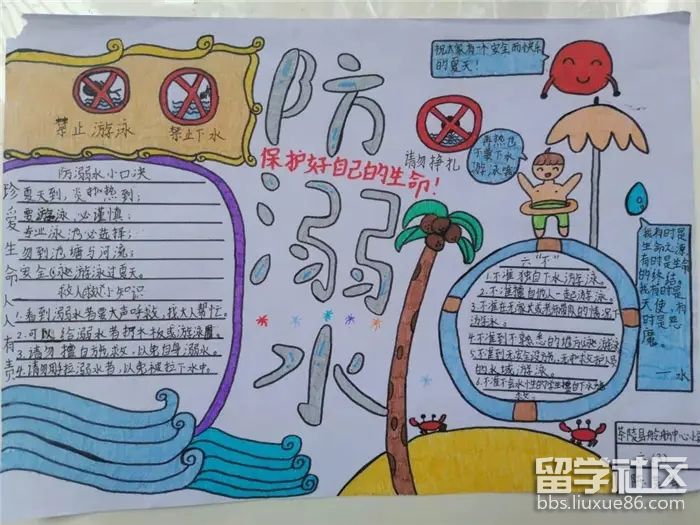 禁止游泳
禁止下水
防
溺
水
保护好自己的生命!
请勿挣扎
祝大家有一个安全而快乐
的夏天!
再热也
不要下水
游泳哦
珍爱生命人人有责
防溺水小口决
夏天到,炎热到;
要游泳,必谨慎;
专业泳池必选择;
勿到池塘与河流;
安全
游泳过夏天。
救人小知识
1.看到溺水者要大声呼救,找大人帮忙。
2.可以给溺水者抛木板或游泳圈。
3.请勿擅自施救,以免自身溺水。
4.请勿用手拉溺水者,以免被拉下水中。
六“不”
1.不准独自下水游泳。
2.不准擅自他人一起游泳。
3.不准在无家长或老师带队的情况下
游泳。
4.不准到不熟悉的地方
游泳
5.不准到无安全设施、无救护人员
的水域游泳。
6.不准不会水性的学生擅自下水施
救。
我有时是
生命之源
有时是生命
的终结。
我有时是
天使,有
时是恶
魔。
——水
茶陵县
中心小学
留学社区
bbs.liuxue86.com